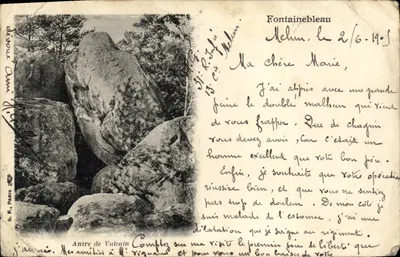 Fontainebleau
Melun, le 2/6-1903
Ma chère Marie,
J'ai appris avec une grande
peine le double malheur qui vient
de vous frapper. Que de chagrin
vous devez avoir, car c'était un
homme excellent que votre bon père.
Enfin, je souhaite que votre opération
réussisse bien, et que vous ne sentiez
pas trop de douleur. De mon côté je
suis malade de l'estomac. J'ai une
dilatation que je soigne au régiment.
Comptez sur ma visite le premier jour de liberté que
j'aurai. Mes amitiés à Mr
et pour vous un bon baiser de votre
Melun
Antre de Vulcain
PARIS